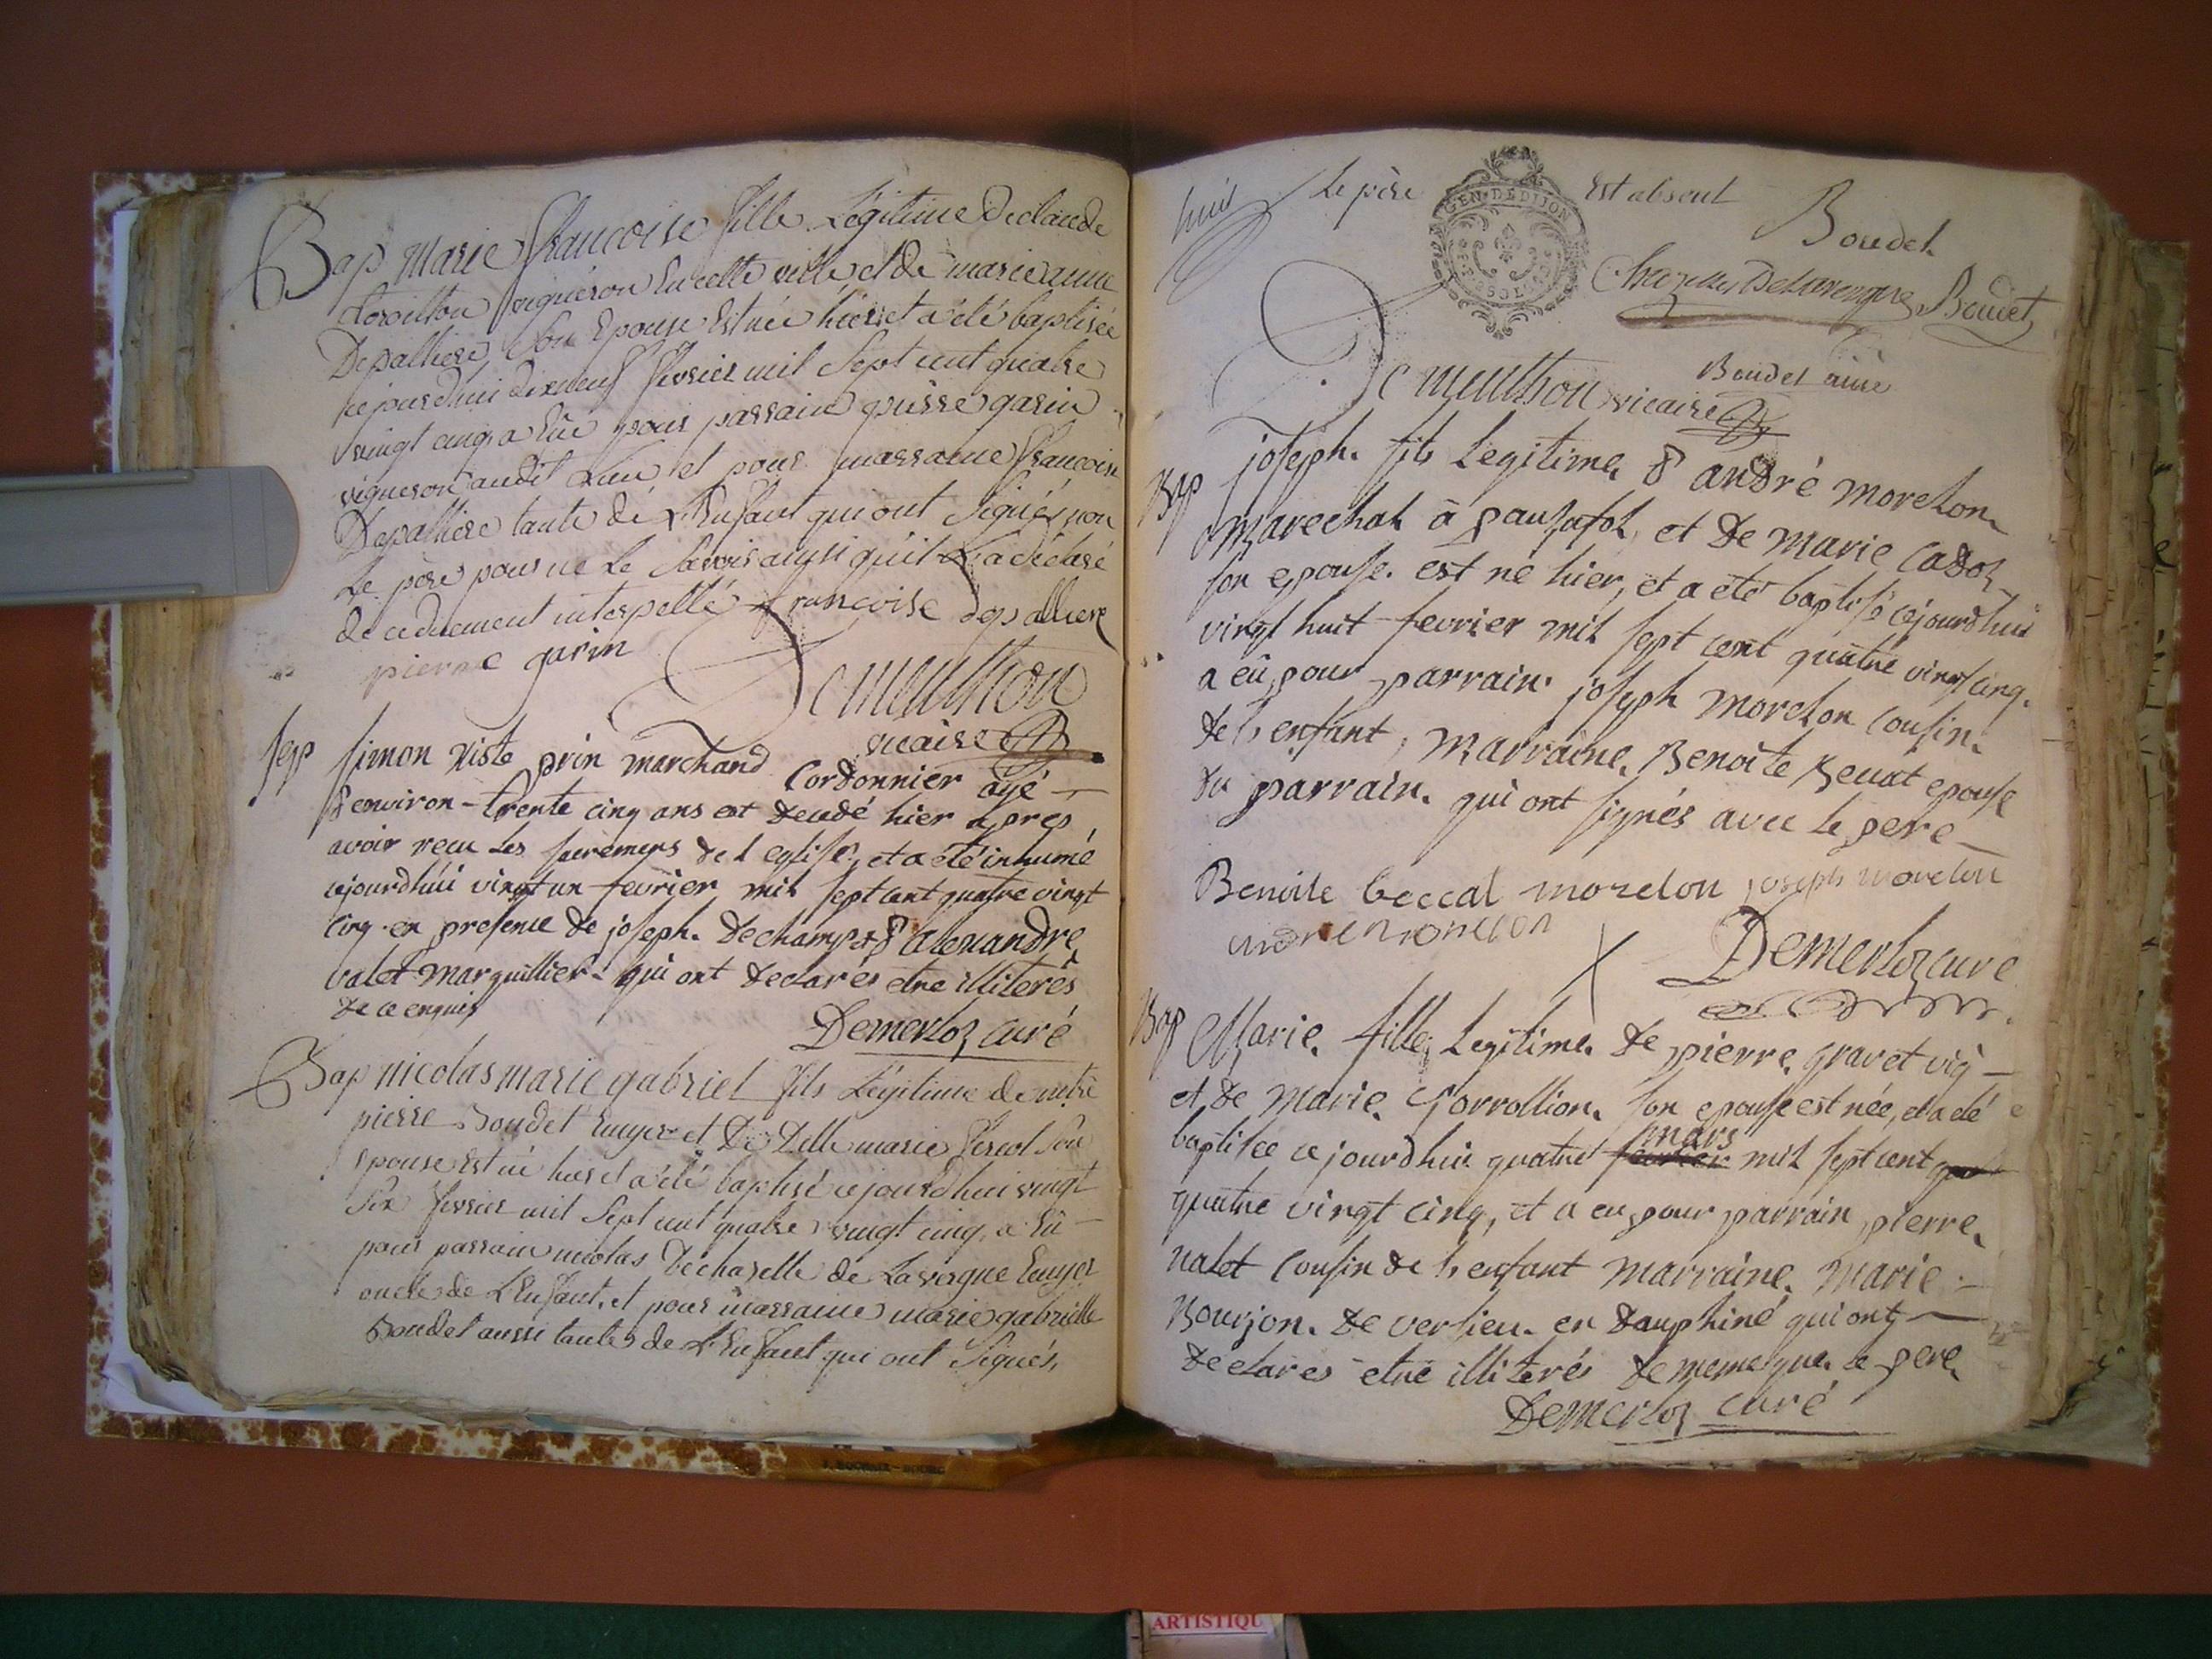 Bap Marie francoise fille Légitime de claude
vigneron En cette ville et de marie anne
Depalliere Son Epouse Est née hier et a été baptisée
cejourdhui dixneuf fevrier mil Sept cent quatre
vingt cinq a Eûe pour parrain pierre garin
vigneron audit Lieu et pour marraine francoise
Depalliere tante de L'Enfant qui ont Signés non
Le père pour ne Le Savoir ainsi qu'il L'a déclaré
de ce duement interpellé francoise depalliere
pierre garin Demeuthon
vicaire
Sep simon Viste prin marchand Cordonnier agé
d'environ trente cinq ans est decedé hier apres
avoir recu les sacremens de l eglise, et a été inhumé
cejourdhui vingt un fevrier mil sept cent quatre vingt
cinq en presence de joseph dechamps & d'alexandre
valet marguillier qui ont declarés etre illiterés
de ce enquis
Demerloz curé
Bap nicolas marie gabriel fils Légitime de mtre
pierre Boudet Ecuyer et De Delle marie Son
Epouse Est né hier et a été baptisé cejourdhui vingt
Six fevrier mil Sept cent quatre vingt cinq, a Eû
pour parrain nicolas Decharelle de Lavergne Ecuyer
oncle de L'Enfant, et pour marraine marie gabrielle
Boudet aussi tante de L'Enfant qui ont Signés,
huit Le père Est absent
GEN. DE DIJON
Boudet
Delavergne Boudet
Boudet ainé
Demeuthon vicaire
Bap joseph fils Legitime d'andré morelon
marechal à et de marie Cadoz
son epouse est né hier, et a été baptisé cejourdhui
vingt huit fevrier mil sept cent quatre vingt cinq
a eû pour parrain joseph morelon Cousin
de l'enfant, marraine Benoite Beccat epouse
du parrain qui ont signés avec le pere
Benoite beccal morelon joseph morelon
andre morelon Demerloz curé
Bap Marie fille Legitime de pierre gravet vig
et de marie Corrollion son epouse est née, et a été
baptisée ce jourdhui quatre fevrier mars mil sept cent
quatre vingt cinq, et a eu pour parrain pierre
valet Cousin de l'enfant marraine marie
Bourjon de verlieu en dauphiné qui ont
declarés etre illiterés de meme que le pere
Demerloz curé
ARTISTIQU